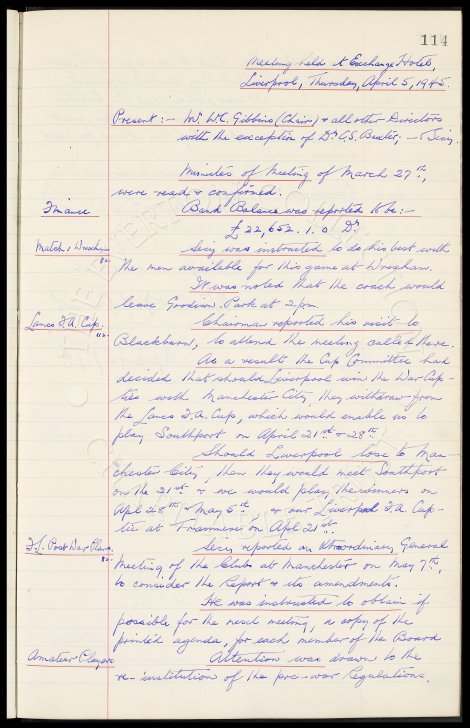 114
Meeting held at Exchange Hotel,
Liverpool, Thursday, April 5, 1945.
Present :- Mr. W.C. Gibbins (Chair) & all other Directors
with the exception of Dr. C.S. Baxter; - & Secy.
Minutes of Meeting of March 27th,
were read & confirmed.
Finance Bank Balance was reported to be:-
£22,652. 1. 0 Dr.
Match v Wrexham Secy was instructed to do his best with
the men available for this game at Wrexham.
It was noted that the coach would
leave Goodison Park at 2 p.m.
Lancs F.A. Cup. Chairman reported his visit to
Blackburn, to attend the meeting called there.
As a result the Cup Committee had
decided that should Liverpool win the War Cup-
ties with Manchester City, they withdraw from
the Lancs F.A. Cup, which would enable us to
play Southport on April 21st & 28th.
Should Liverpool lose to Man-
chester City, then they would meet Southport
on the 21st & we would play the winners on
Apl 28th, & May 5th, & our Liverpool F.A. Cup-
tie at Tranmere on Apl 21st.
F.L. Post War Plans Secy reported an Xtraordinary General
Meeting of the Clubs at Manchester on May 7th,
to consider the Report & its amendments.
He was instructed to obtain if
possible for the next meeting, a copy of the
printed agenda, for each member of the Board
Amateur Players Attention was drawn to the
re-institution of the pre-war Regulations.